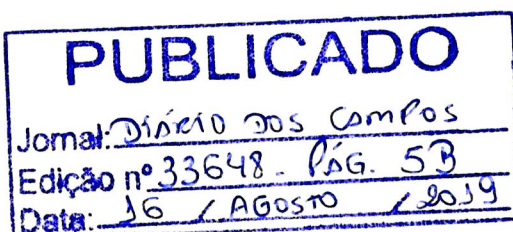 PUBLICADO
Jornal: DIÁRIO DOS CAMPOS
Edição nº 33648 - PÁG. 5B
Data: 16 / AGOSTO / 2019